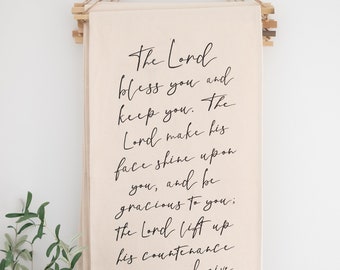 The Lord
bless you and
keep you. The
Lord make his
face shine upon
you, and be
gracious to you;
the Lord lift up
his countenance